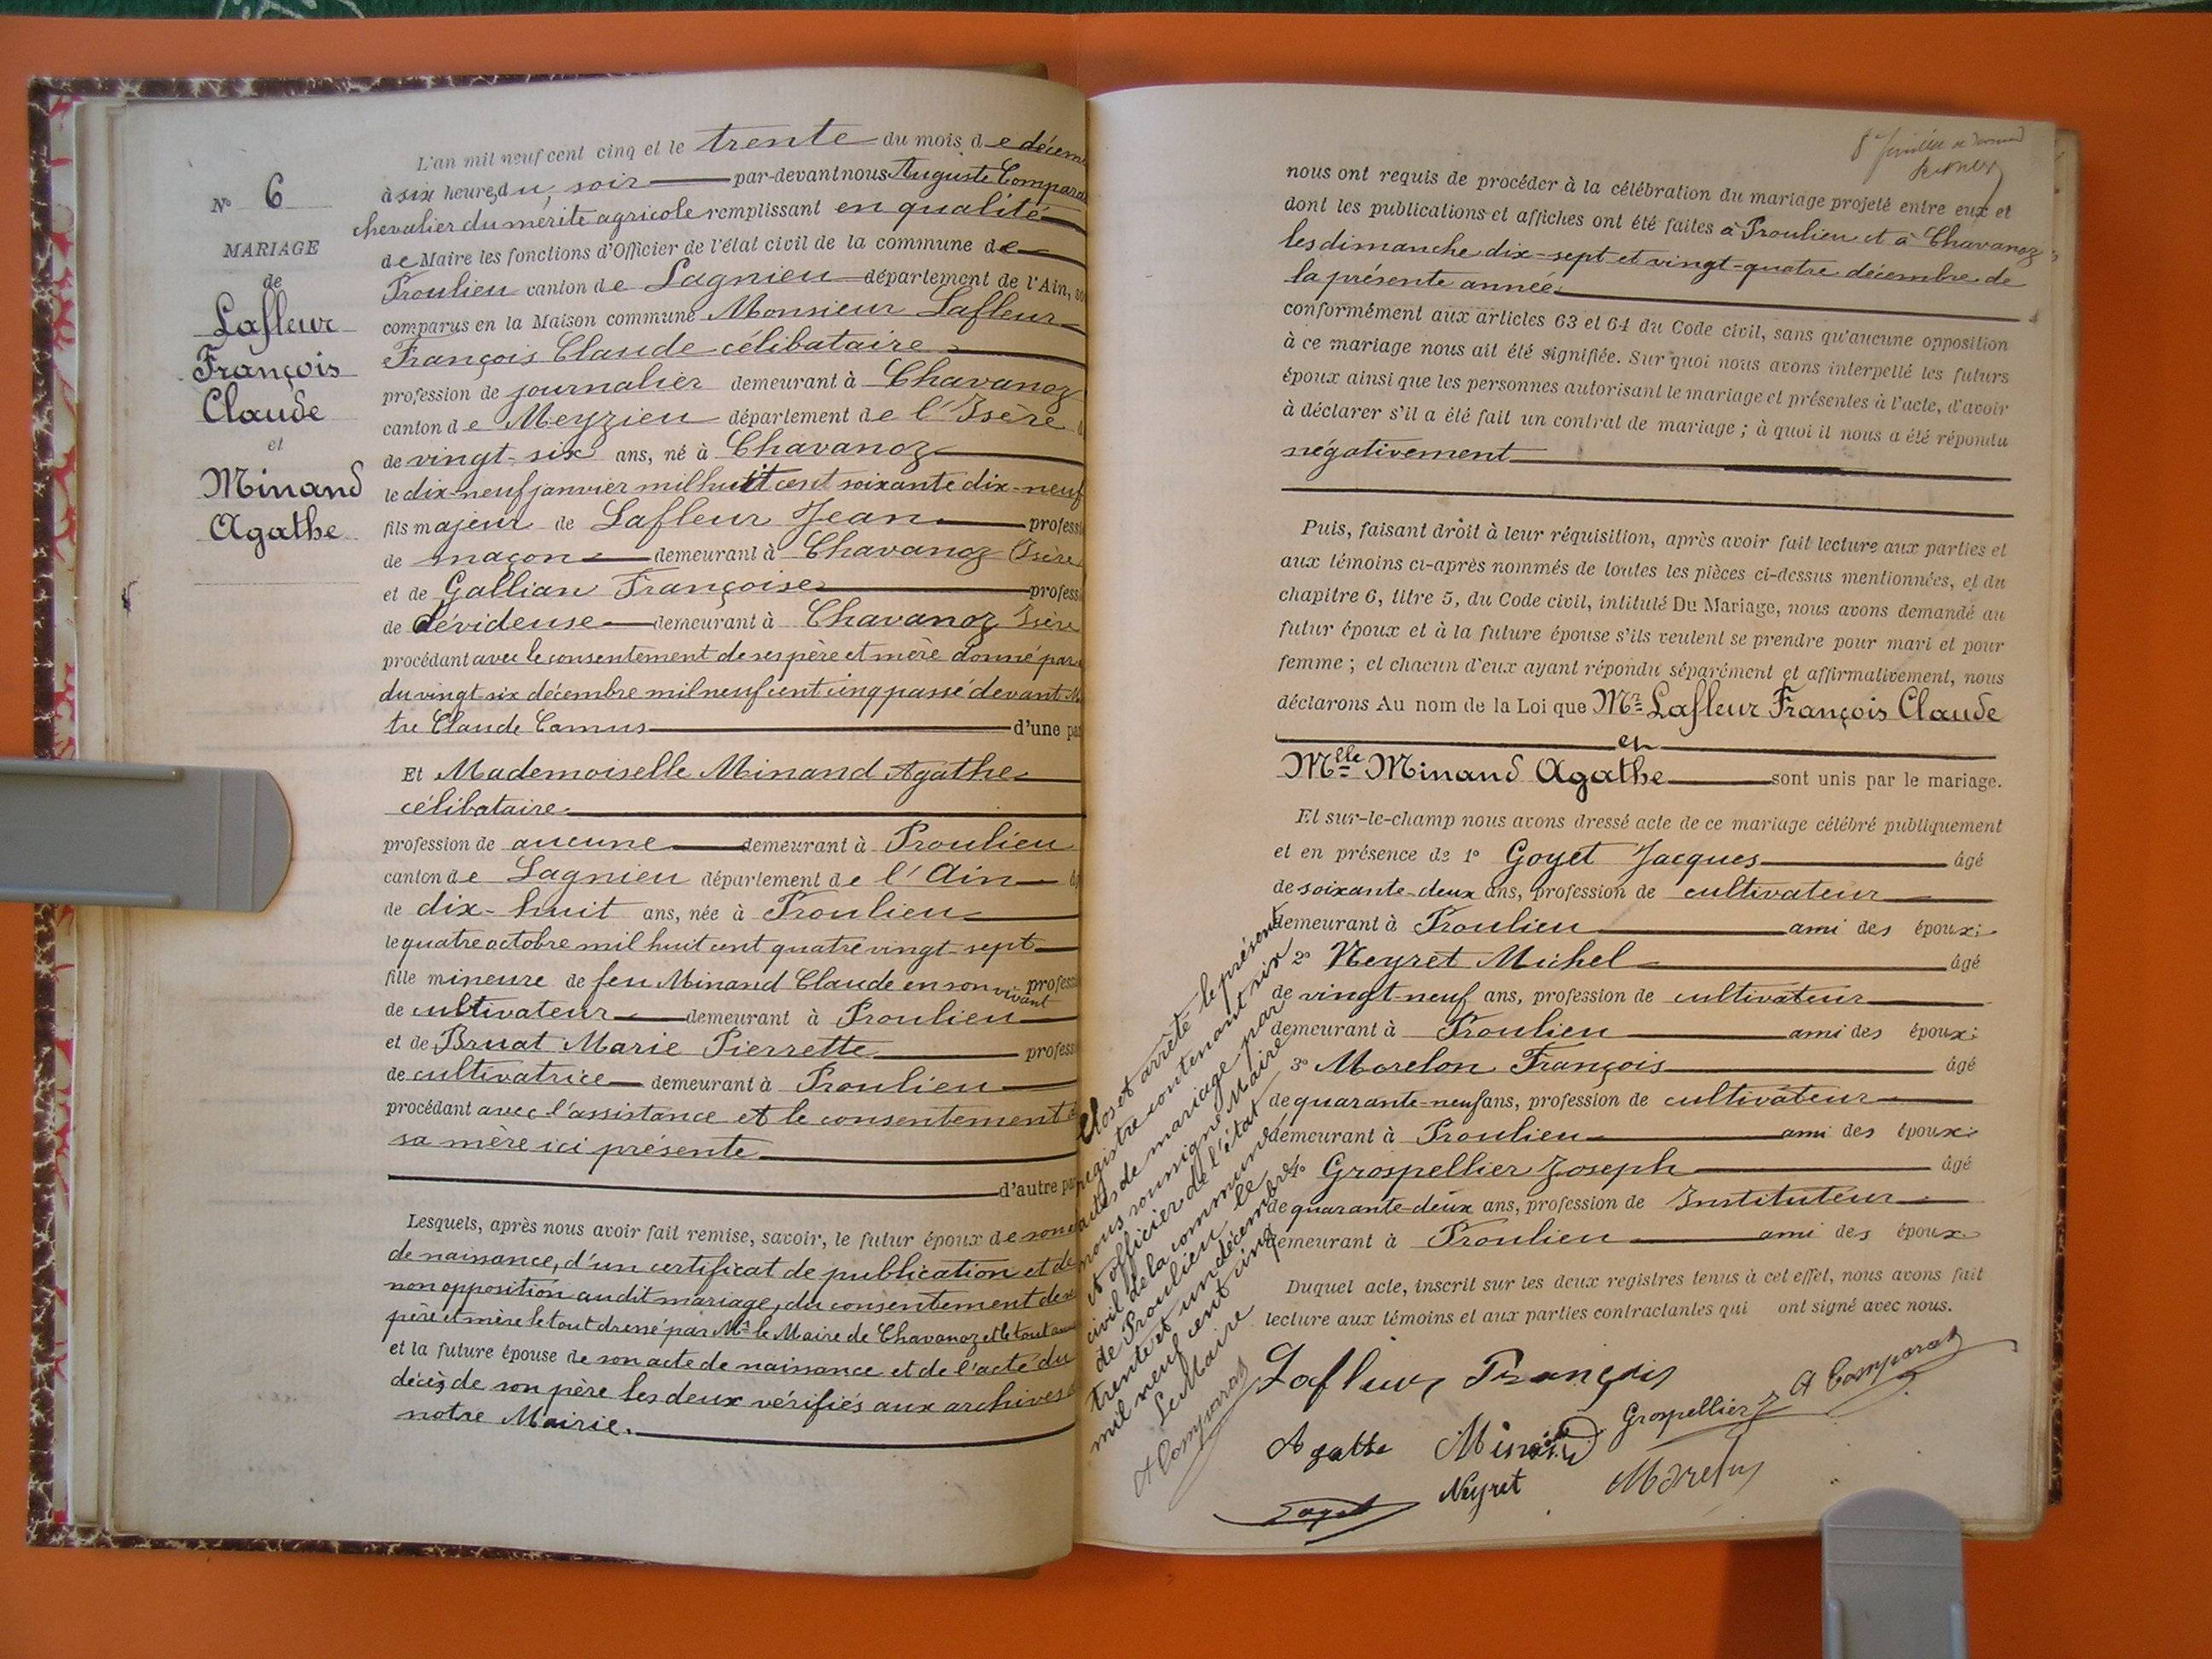 N° 6
MARIAGE
de
Lafleur
François
Claude
et
Minand
Agathe
L'an mil neuf cent cinq et le trente du mois de décem
à six heures du soir par-devant nous Auguste Compara
chevalier du mérite agricole remplissant en qualité
de Maire les fonctions d'Officier de l'état civil de la commune de
Proulieu canton de Lagnieu département de l'Ain, so
comparus en la Maison commune Monsieur Lafleur
François Claude célibataire
profession de journalier demeurant à Chavanoz
canton de Meyzieu département de l'Isère
de vingt-six ans, né à Chavanoz
le dix-neuf janvier mil huit cent soixante dix-neuf
fils majeur de Lafleur Jean professi
de maçon demeurant à Chavanoz Isère
et de Gallian Françoise professi
de dévideuse demeurant à Chavanoz Isère
procédant avec le consentement de ses père et mère donné par
du vingt six décembre mil neuf cent cinq passé devant M
tre Claude Camus d'une pa
Et Mademoiselle Minand Agathe
célibataire
profession de aucune demeurant à Proulieu
canton de Lagnieu département de l'Ain
de dix-huit ans, née à Proulieu
le quatre octobre mil huit cent quatre vingt-sept
fille mineure de feu Minand Claude en son vivant professi
de cultivateur demeurant à Proulieu
et de Bruat Marie Pierrette professi
de cultivatrice demeurant à Proulieu
procédant avec l'assistance et le consentement d
sa mère ici présente
d'autre par
Lesquels, après nous avoir fait remise, savoir, le futur époux de son
de naissance, d'un certificat de publication et de
non opposition audit mariage, du consentement de ses
père et mère le tout dressé par Mr le Maire de Chavanoz et le tout
et la future épouse de son acte de naissance et de l'acte du
décès de son père les deux vérifiés aux archives
notre Mairie.
nous ont requis de procéder à la célébration du mariage projeté entre eux et
dont les publications et affiches ont été faites à Proulieu et à Chavanoz
les dimanche dix-sept et vingt-quatre décembre de
la présente année
conformément aux articles 63 et 64 du Code civil, sans qu'aucune opposition
à ce mariage nous ait été signifiée. Sur quoi nous avons interpellé les futurs
époux ainsi que les personnes autorisant le mariage et présentes à l'acte, d'avoir
à déclarer s'il a été fait un contrat de mariage ; à quoi il nous a été répondu
négativement
Puis, faisant droit à leur réquisition, après avoir fait lecture aux parties et
aux témoins ci-après nommés de toutes les pièces ci-dessus mentionnées, et du
chapitre 6, titre 5, du Code civil, intitulé Du Mariage, nous avons demandé au
futur époux et à la future épouse s'ils veulent se prendre pour mari et pour
femme ; et chacun d'eux ayant répondu séparément et affirmativement, nous
déclarons Au nom de la Loi que Mr Lafleur François Claude
et
Mlle Minand Agathe sont unis par le mariage.
Et sur-le-champ nous avons dressé acte de ce mariage célébré publiquement
et en présence de 1° Goyet Jacques âgé
de soixante-deux ans, profession de cultivateur
demeurant à Proulieu ami des époux;
2° Neyret Michel âgé
de vingt-neuf ans, profession de cultivateur
demeurant à Proulieu ami des époux;
3° Morelon François âgé
de quarante-neuf ans, profession de cultivateur
demeurant à Proulieu ami des époux;
4° Grospellier Joseph âgé
de quarante-deux ans, profession de Instituteur
demeurant à Proulieu ami des époux
Duquel acte, inscrit sur les deux registres tenus à cet effet, nous avons fait
lecture aux témoins et aux parties contractantes qui ont signé avec nous.
Clos et arrêté le présent
registre contenant six
actes de mariage par
nous soussigné Maire
et officier de l'état
civil de la commune
de Proulieu le
trente et un décembre
mil neuf cent cinq
Le Maire
A Comparat
Lafleur François
A Comparat
Grospellier J
Agathe Minand
Neyret
Morelon
Goyet